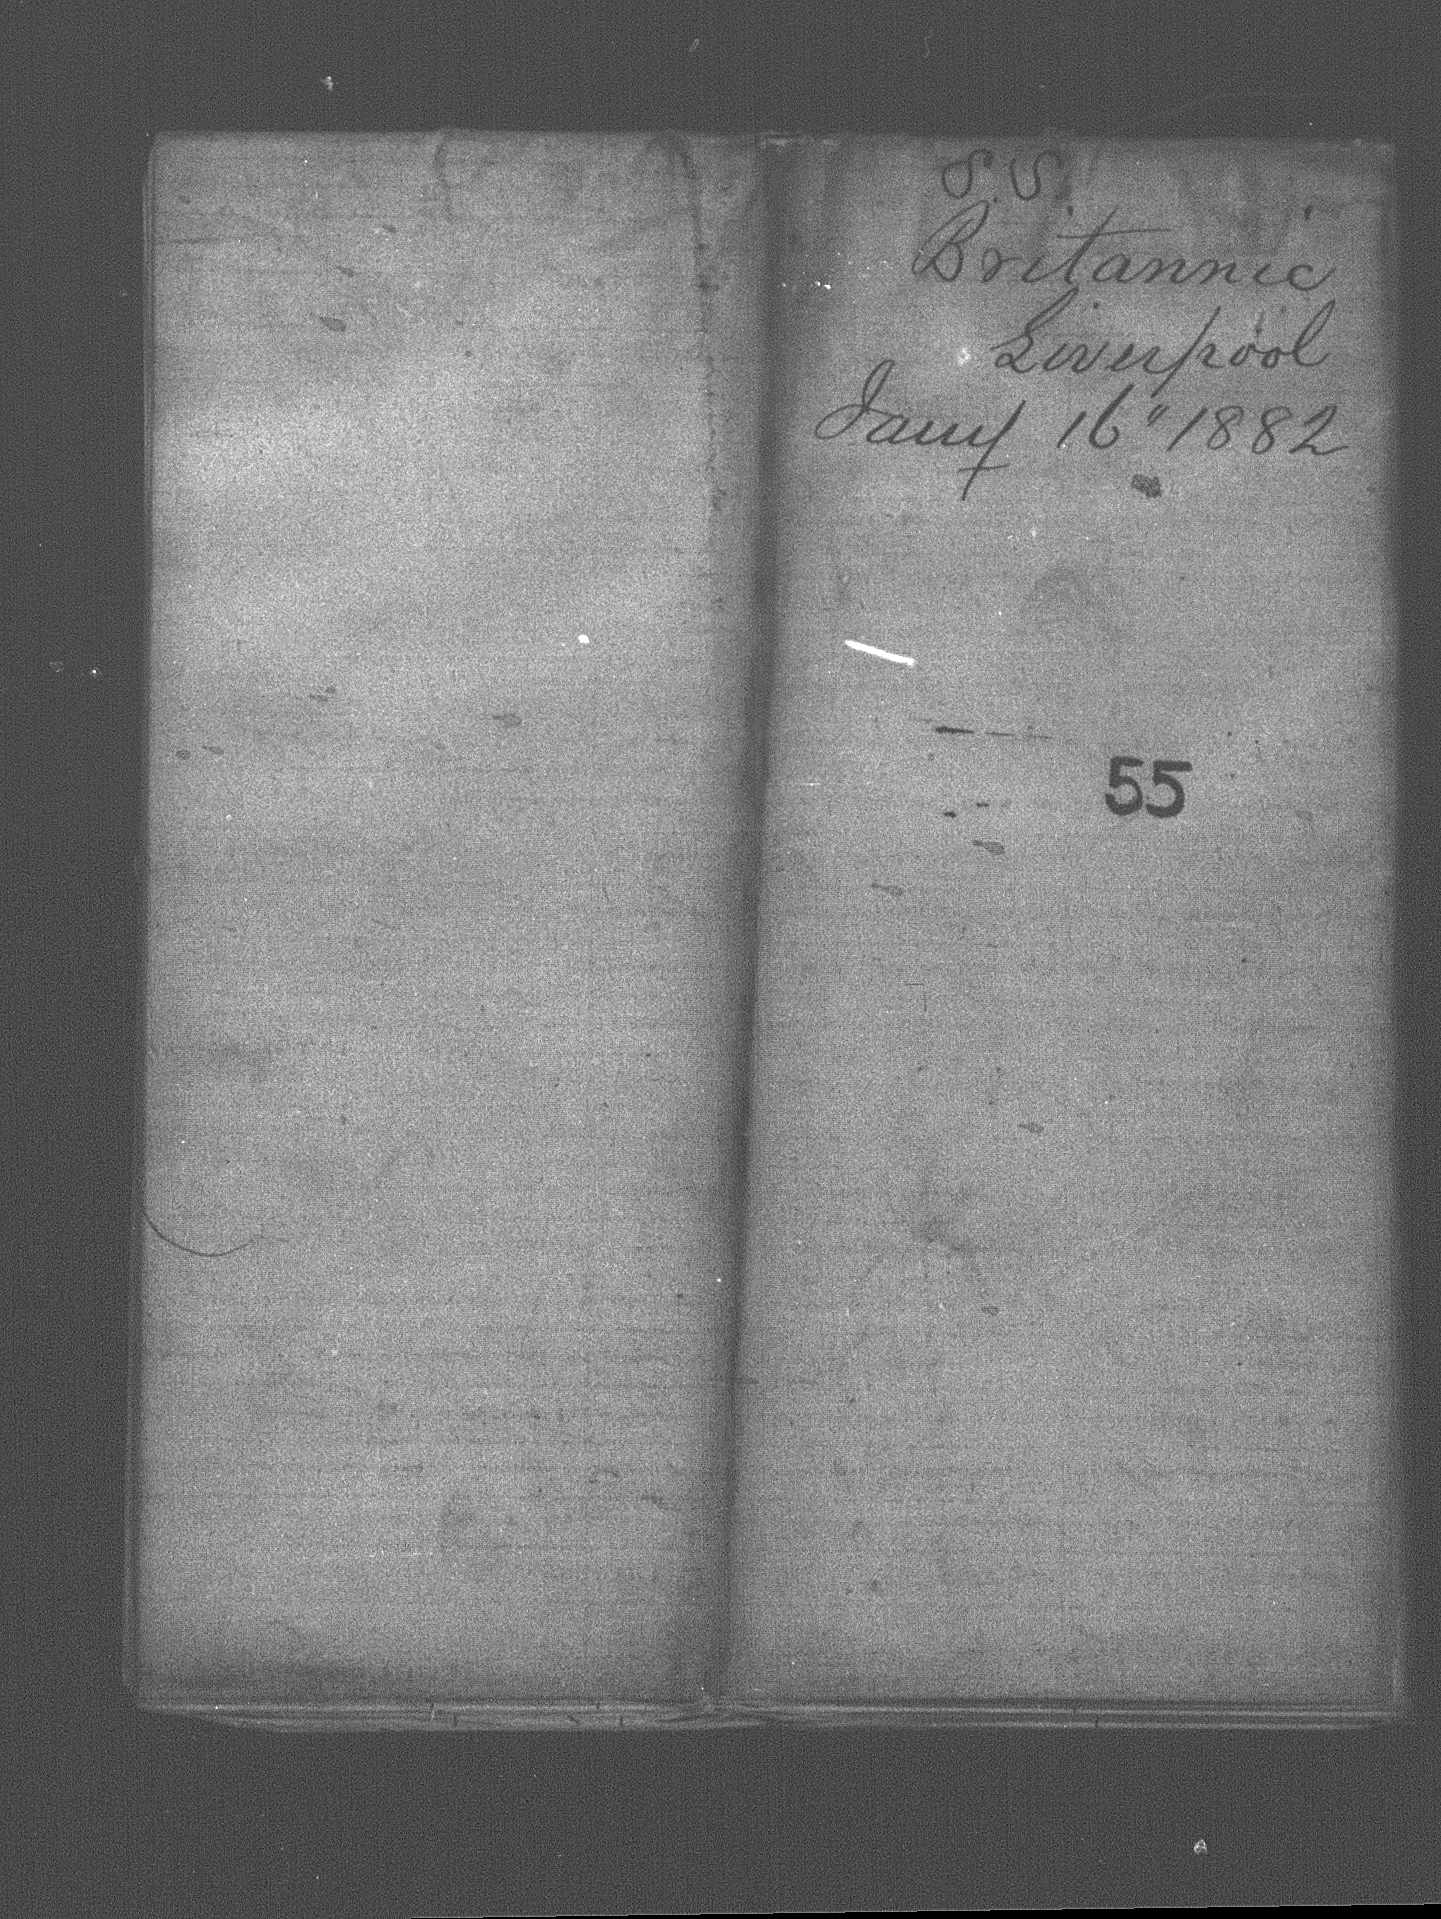 S.S.
Britannic
Liverpool
Jany 16" 1882
55